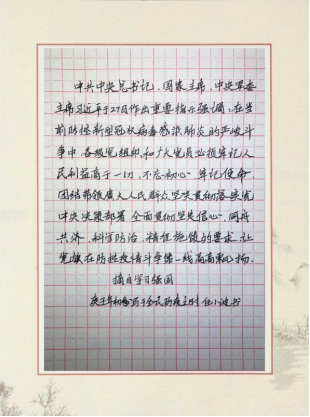 中共中央总书记、国家主席、中央军委
主席习近平于27日作出重要指示强调,在当
前防控新型冠状病毒感染肺炎的严峻斗
争中,各级党组织和广大党员必须牢记人
民利益高于一切,不忘初心、牢记使命,
团结带领广大人民群众坚决贯彻落实党
中央决策部署,全面贯彻坚定信心、同舟
共济、科学防治、精准施策的要求,让
党旗在防控疫情斗争第一线高高飘扬。
摘自学习强国
庚子年初春